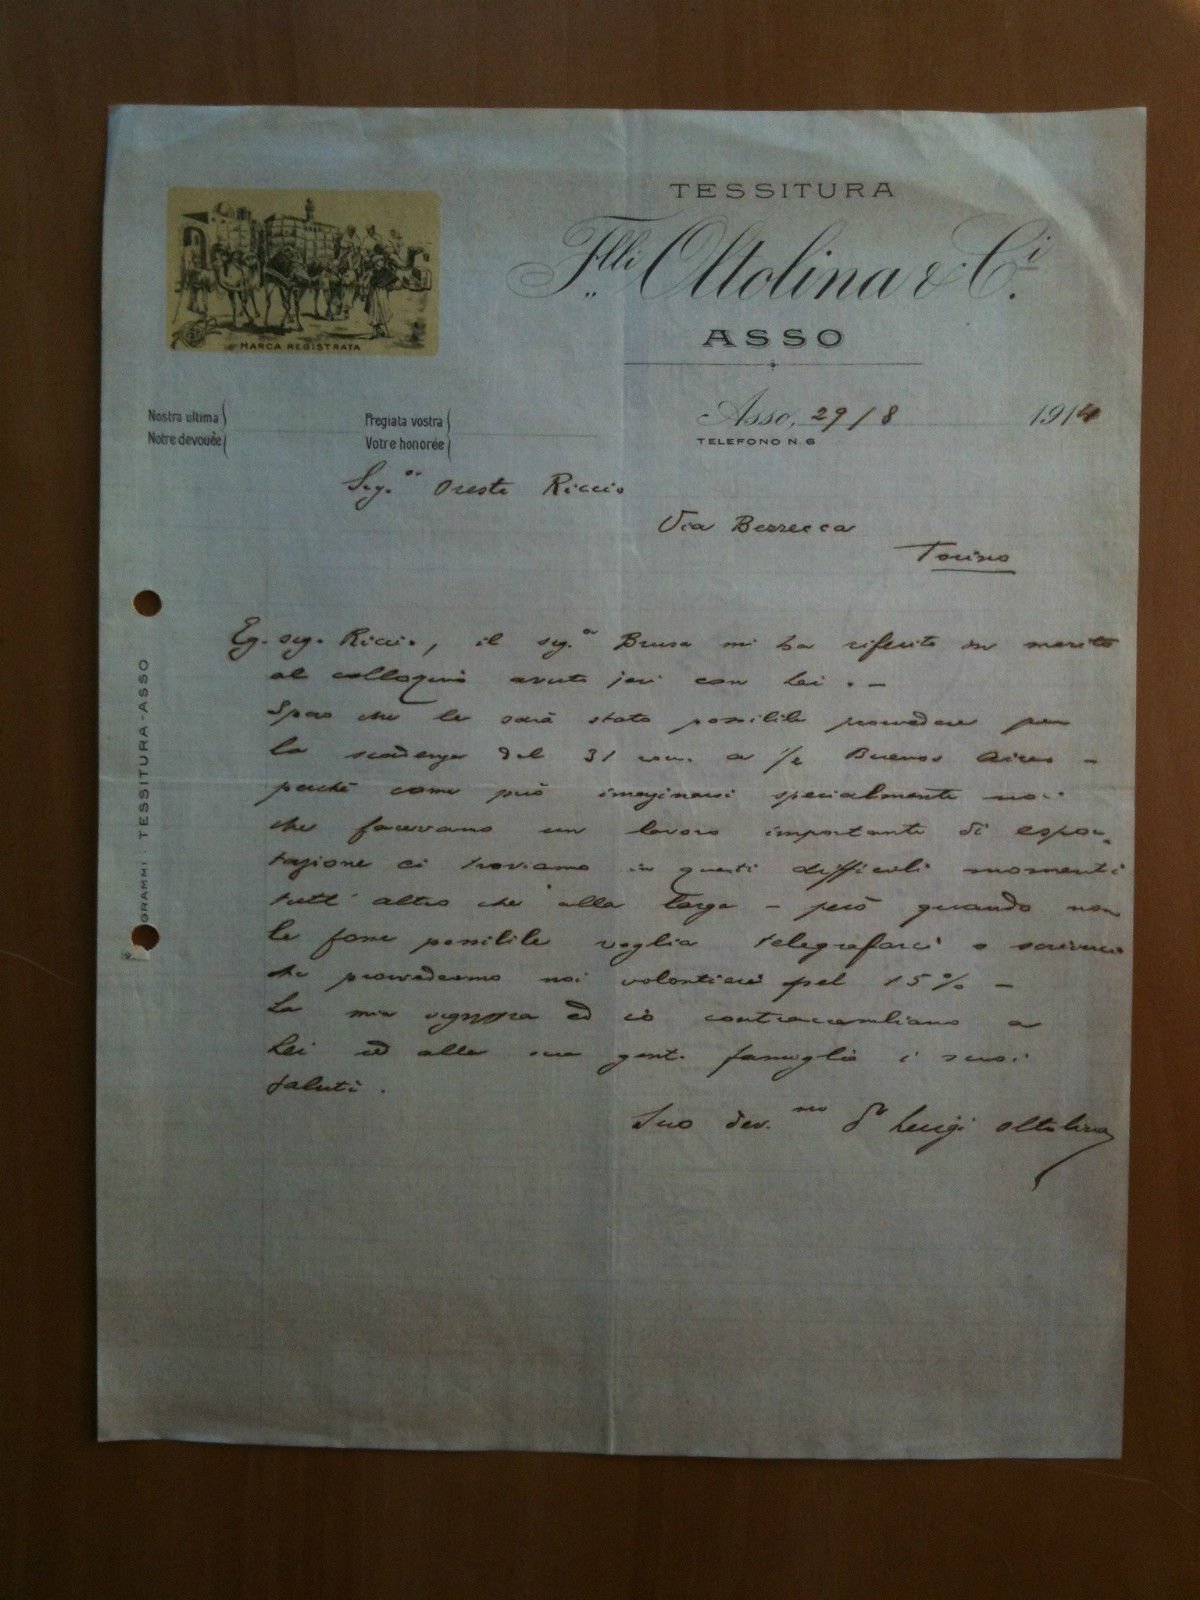 TESSITURA
F.lli Ottolina & C.i
ASSO
MARCA REGISTRATA
Nostra ultima
Notre devouée
Pregiata vostra
Votre honorée
Asso, 29/8 1914
TELEFONO N. 6
Sig.or Oreste Riccio
Via Bezzecca
Torino
Eg. sig. Riccio, il sig.or Brusa mi ha riferito in merito
al colloquio avuto jeri con Lei. -
Spero che le sarà stato possibile provvedere per
la scadenza del 31 corr. a Buenos Aires -
perchè come può imaginarsi specialmente noi
che facevamo un lavoro importante di espor-
tazione ci troviamo in questi difficili momenti
tutt'altro che alla larga - però quando non
le fosse possibile voglia telegrafarci o scriverci
che provvederemo noi volontieri pel 15% -
La mia ed io contracambiamo a
Lei ed alla sua gent. famiglia i suoi
saluti.
Suo dev.mo Dr Luigi Ottolina
GRAMMI: TESSITURA-ASSO